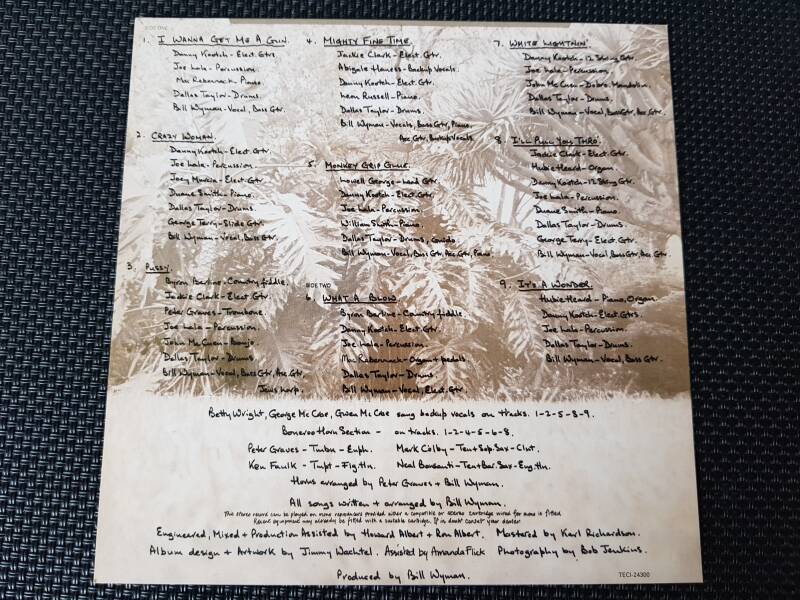 SIDE ONE
1. I WANNA GET ME A GUN.
Danny Kootch - Elect. Gtrs.
Joe Lala - Percussion.
Mac Rebennack - Piano.
Dallas Taylor - Drums.
Bill Wyman - Vocal, Bass Gtr.
2. CRAZY WOMAN.
Danny Kootch - Elect. Gtr.
Joe Lala - Percussion
Joey Murcia - Elect. Gtr.
Duane Smith - Piano.
Dallas Taylor - Drums.
George Terry - Slide Gtr.
Bill Wyman - Vocal, Bass Gtr.
3. PUSSY.
Byron Berline - Country fiddle.
Jackie Clark - Elect. Gtr.
Peter Graves - Trombone.
Joe Lala - Percussion.
John McCuen - Banjo.
Dallas Taylor - Drums
Bill Wyman - Vocal, Bass Gtr, Acc. Gtr.
Jaws harp.
4. MIGHTY FINE TIME.
Jackie Clark - Elect. Gtr.
Abigale Haness - Backup Vocals.
Danny Kootch - Elect. Gtr.
Leon Russell - Piano.
Dallas Taylor - Drums.
Bill Wyman - Vocals, Bass Gtr, Piano
Acc. Gtr, Backup Vocals.
5. MONKEY GRIP GLUE.
Lowell George - Lead Gtr.
Danny Kootch - Elect. Gtr.
Joe Lala - Percussion.
William Smith - Piano.
Dallas Taylor - Drums, Guido.
Bill Wyman - Vocal, Bass Gtr, Acc. Gtr, Piano
SIDE TWO
6. WHAT A BLOW.
Byron Berline - Country fiddle.
Danny Kootch - Elect. Gtr.
Joe Lala - Percussion.
Mac Rebennack - Organ + pedals
Dallas Taylor - Drums
Bill Wyman - Vocal, Elect. Gtr.
7. WHITE LIGHTNIN'
Danny Kootch - 12 String Gtr.
Joe Lala - Percussion.
John McCuen - Dobro. Mandolin.
Dallas Taylor - Drums.
Bill Wyman - Vocal, Bass Gtr, Acc. Gtr.
8. I'LL PULL YOU THRO.
Jackie Clark - Elect. Gtr.
Hubie Heard - Organ.
Danny Kootch - 12 String Gtr.
Joe Lala - Percussion.
Duane Smith - Piano.
Dallas Taylor - Drums.
George Terry - Elect. Gtr.
Bill Wyman - Vocal, Bass Gtr, Acc. Gtr.
9. IT'S A WONDER.
Hubie Heard - Piano, Organ.
Danny Kootch - Elect. Gtrs.
Joe Lala - Percussion.
Dallas Taylor - Drums
Bill Wyman - Vocal, Bass Gtr.
Betty Wright, George McCrae, Gwen McCrae sang backup vocals on tracks. 1-2-5-8-9.
Bonaroo Horn Section - on tracks. 1-2-4-5-6-8.
Peter Graves - Tmbn - Euph. Mark Colby - Ten + Sop. Sax - Clnt.
Ken Faulk - Tmpt - Flg. Hn. Neal Bonsanti - Ten + Bar. Sax - Eng. Hn.
Horns arranged by Peter Graves + Bill Wyman.
All songs written + arranged by Bill Wyman.
This stereo record can be played on mono reproducers provided either a compatible or stereo cartridge wired for mono is fitted.
Recent equipment may already be fitted with a suitable cartridge. If in doubt consult your dealer
Engineered, Mixed + Production Assisted by Howard Albert + Ron Albert. Mastered by Karl Richardson.
Album design + Artwork by Jimmy Wachtel. Assisted by Amanda Flick Photography by Bob Jenkins.
Produced by Bill Wyman.
TECI-24300